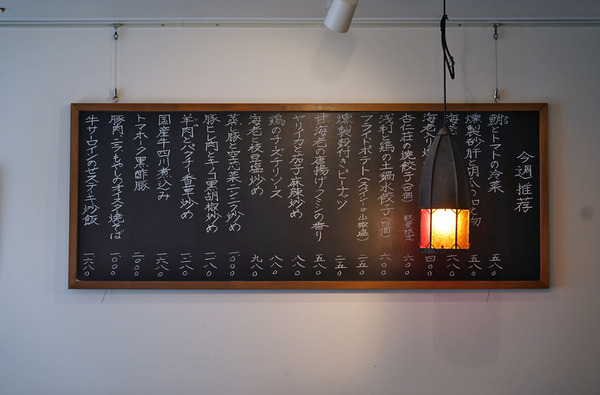 今週推荐
鮹とトマトの冷菜 五八〇
燻製砂肝と胡 五八〇
海老 六八〇
海老入り 四〇〇
杏仁荘の焼餃子(四個) 数量限定 六〇〇
浅利と鶏の土鍋水餃子(四個) 六〇〇
フライドポテト(スパイシー山椒塩) 二五〇
燻製殻付きピーナツ 二五〇
甘海老の唐揚げクミンの香り 五八〇
ヤリイカと茄子麻辣炒め 八八〇
鶏のチーズチリソース 八八〇
海老と枝豆塩炒め 九八〇
蒸し豚と空芯菜ニンニク炒め 一〇〇〇
豚ヒレ肉とキノコ黒胡椒炒め 一一八〇
羊肉とパクチー香菜炒め 一二八〇
国産牛四川煮込み 一二八〇
トマホーク黒酢豚 二〇〇〇
豚肉ニラもやしのオイスター焼そば 一〇〇〇
牛サーロインのせステーキ炒飯 一六八〇